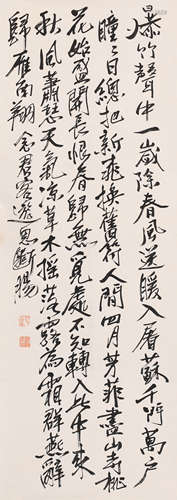 爆竹聲中一歲除春風送暖入屠蘇千門萬戶
曈々日總把新桃換舊符人間四月芳菲盡山寺桃
花始盛開長恨春歸無覓處不知轉入此中來
秋風蕭瑟天氣涼草木搖落露為霜群燕辭
歸雁南翔念君客遊思斷腸